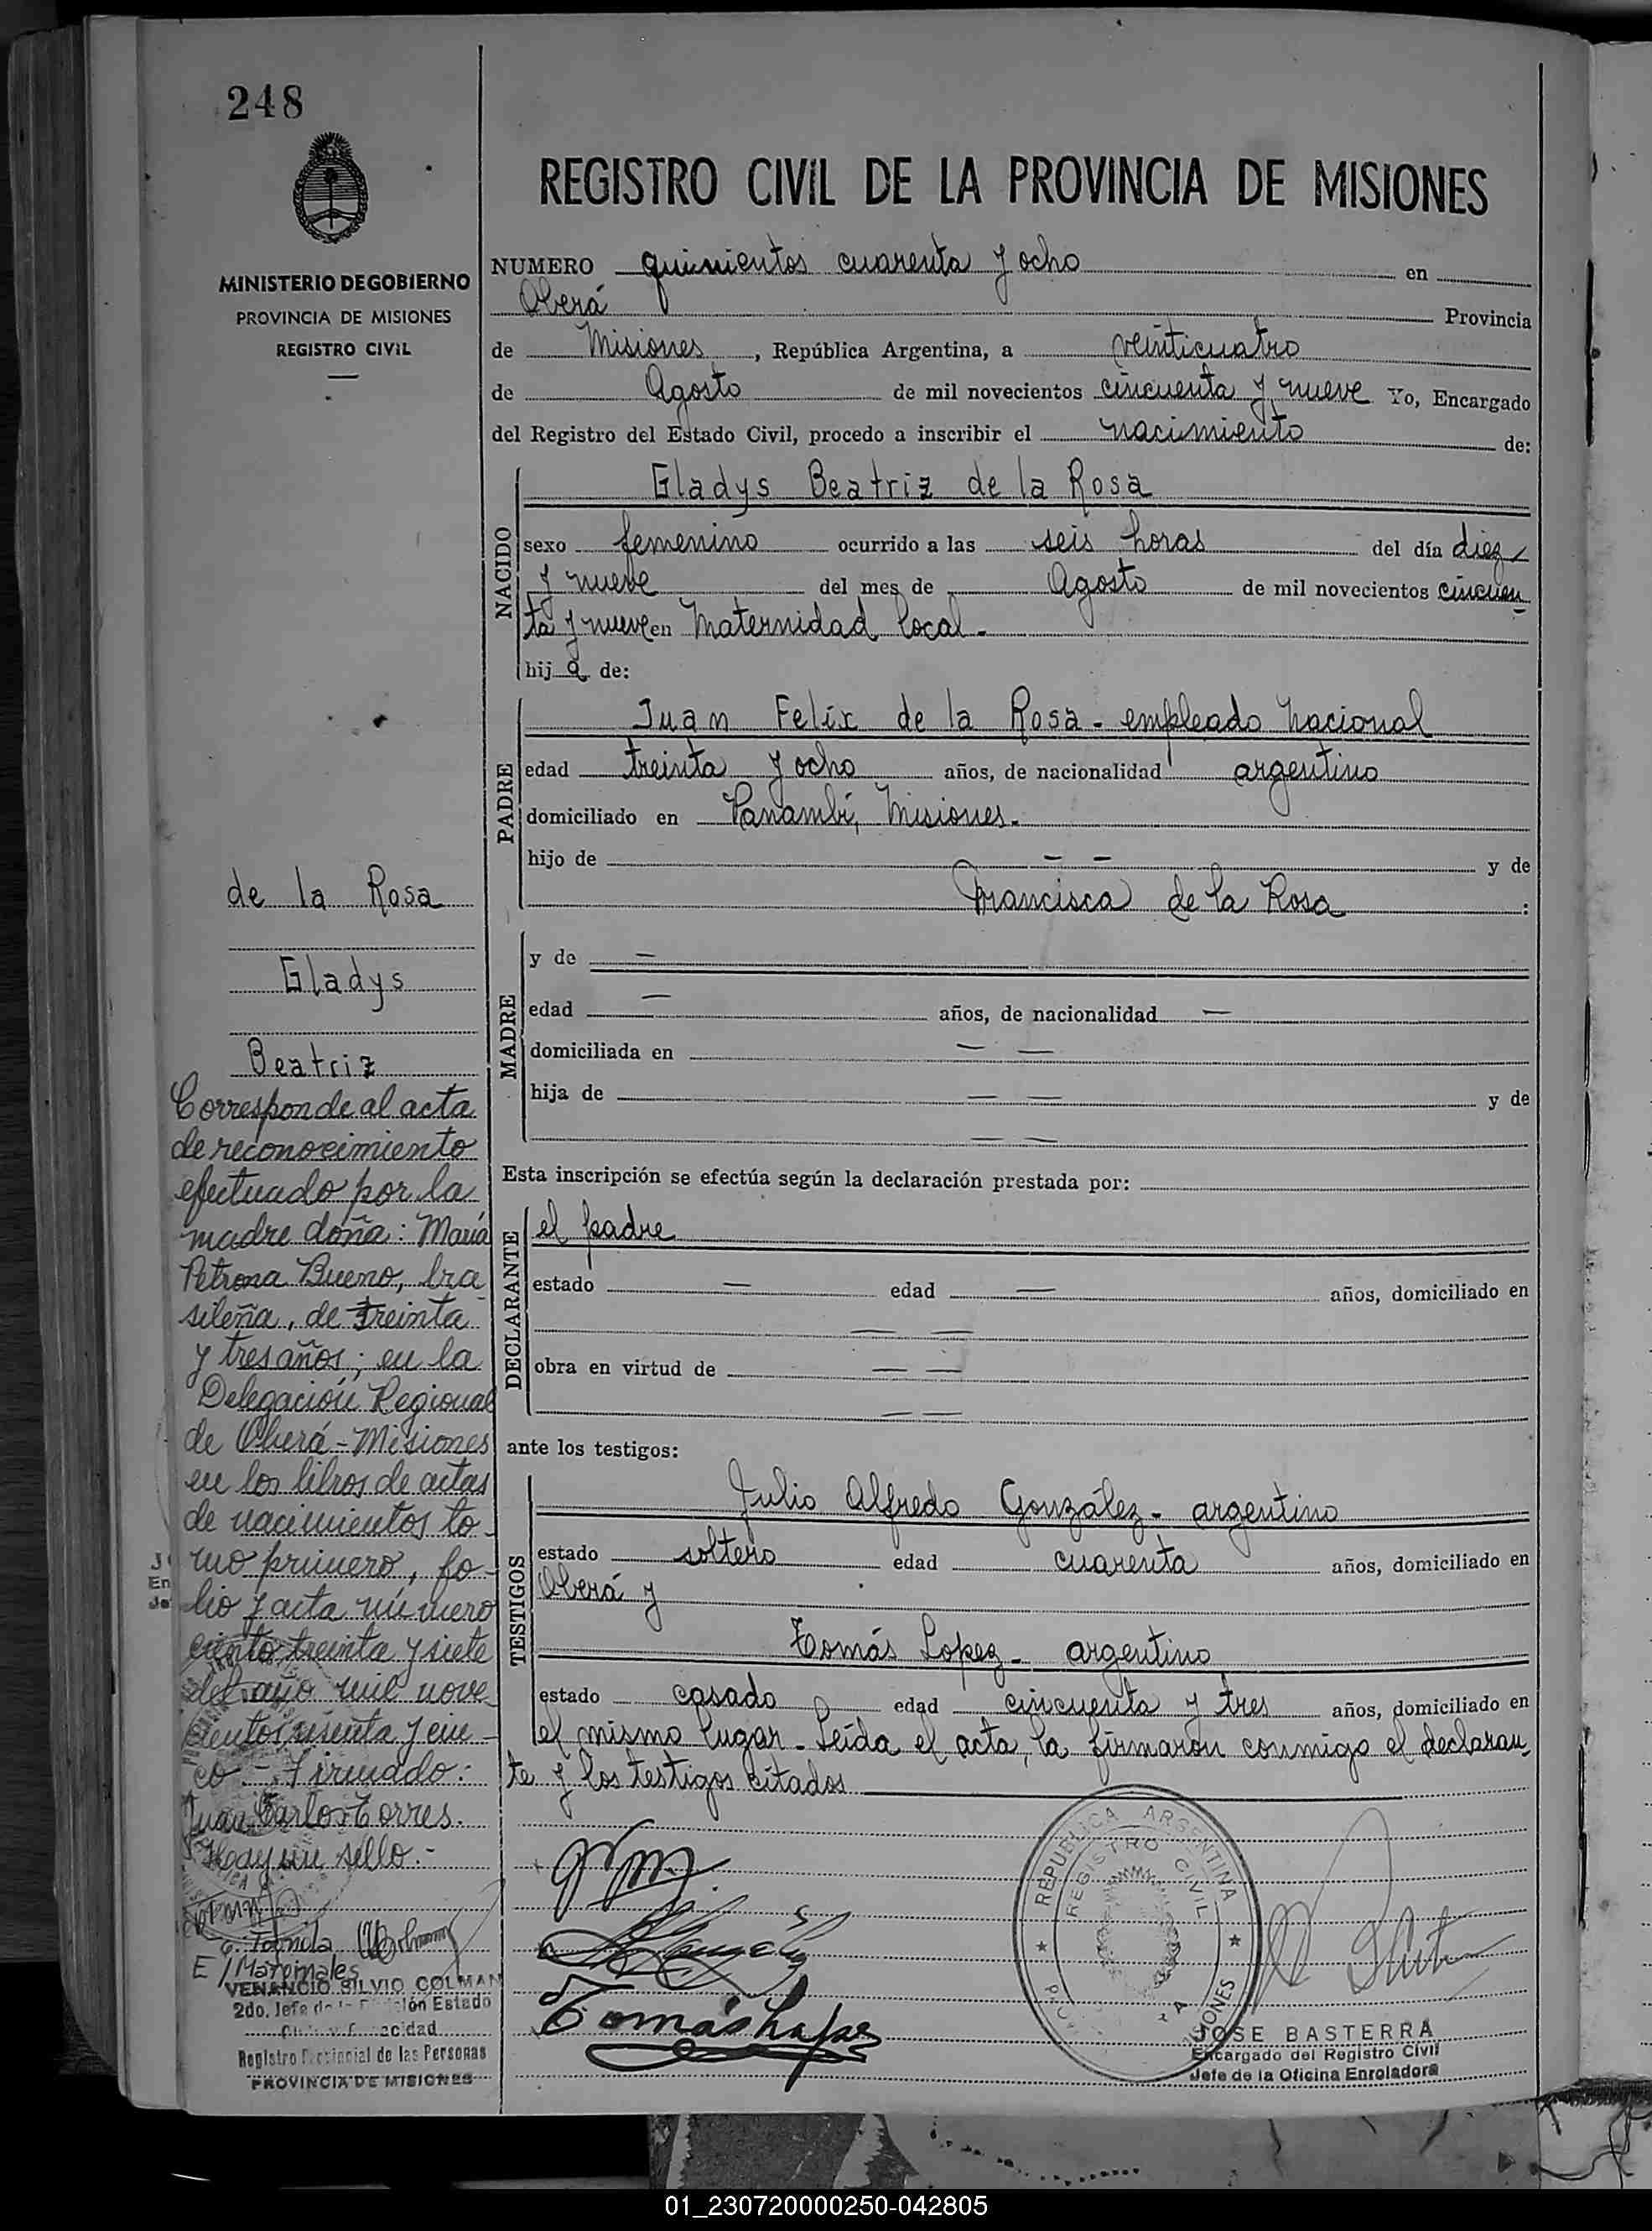 248
MINISTERIO DE GOBIERNO
PROVINCIA DE MISIONES
REGISTRO CIVIL
REGISTRO CIVIL DE LA PROVINCIA DE MISIONES
NUMERO quinientos cuarenta y ocho en
Oberá Provincia
de Misiones, República Argentina, a veinticuatro
de Agosto de mil novecientos cincuenta y nueve Yo, Encargado
del Registro del Estado Civil, procedo a inscribir el nacimiento de:
NACIDO
Gladys Beatriz de la Rosa
sexo femenino ocurrido a las seis horas del día diez
y nueve del mes de Agosto de mil novecientos cincuen
ta y nueve en Maternidad local.-
hija de:
PADRE
Juan Felix de la Rosa - empleado nacional
edad treinta y ocho años, de nacionalidad argentino
domiciliado en Panambí, Misiones.
hijo de — — y de
Francisca de la Rosa :
MADRE
y de —
edad — años, de nacionalidad —
domiciliada en — —
hija de — — y de
— —
Esta inscripción se efectúa según la declaración prestada por:
DECLARANTE
el padre
estado — edad — años, domiciliado en
— —
obra en virtud de — —
— —
ante los testigos:
TESTIGOS
Julio Alfredo González - argentino
estado soltero edad cuarenta años, domiciliado en
Oberá y
Tomás Lopez - argentino
estado casado edad cincuenta y tres años, domiciliado en
el mismo lugar - Leída el acta, la firmaron conmigo el declaran
te y los testigos citados
de la Rosa
Gladys
Beatriz
Corresponde al acta
de reconocimiento
efectuado por la
madre doña: María
Petrona Bueno, bra
sileña, de treinta
y tres años; en la
Delegación Regional
de Oberá - Misiones
en los libros de actas
de nacimientos to-
mo primero, fo-
lio y acta número
ciento treinta y siete
del año mil nove
cientos sesenta y cin-
co.- Firmado:
Juan Carlos Torres.
Hay un sello.-
E/Marginales
VENANCIO SILVIO COLMAN
2do. Jefe de la División Estado
Civil y Capacidad
Registro Provincial de las Personas
PROVINCIA DE MISIONES
Tomás Lopez
REPUBLICA ARGENTINA
REGISTRO CIVIL
MISIONES
JOSE BASTERRA
Encargado del Registro Civil
Jefe de la Oficina Enroladora
01_230720000250-042805